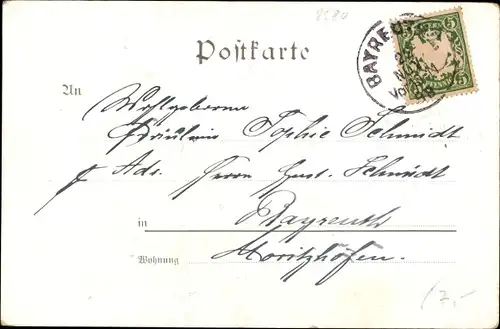 8580
Postkarte
BAYREUTH
5 BAYERN 5
An
Wohlgeboren
Fräulein Sophie Schmidt
p. Adr. Herrn Gust. Schmidt
in Bayreuth
Wohnung Moritzhöfen.
7,-